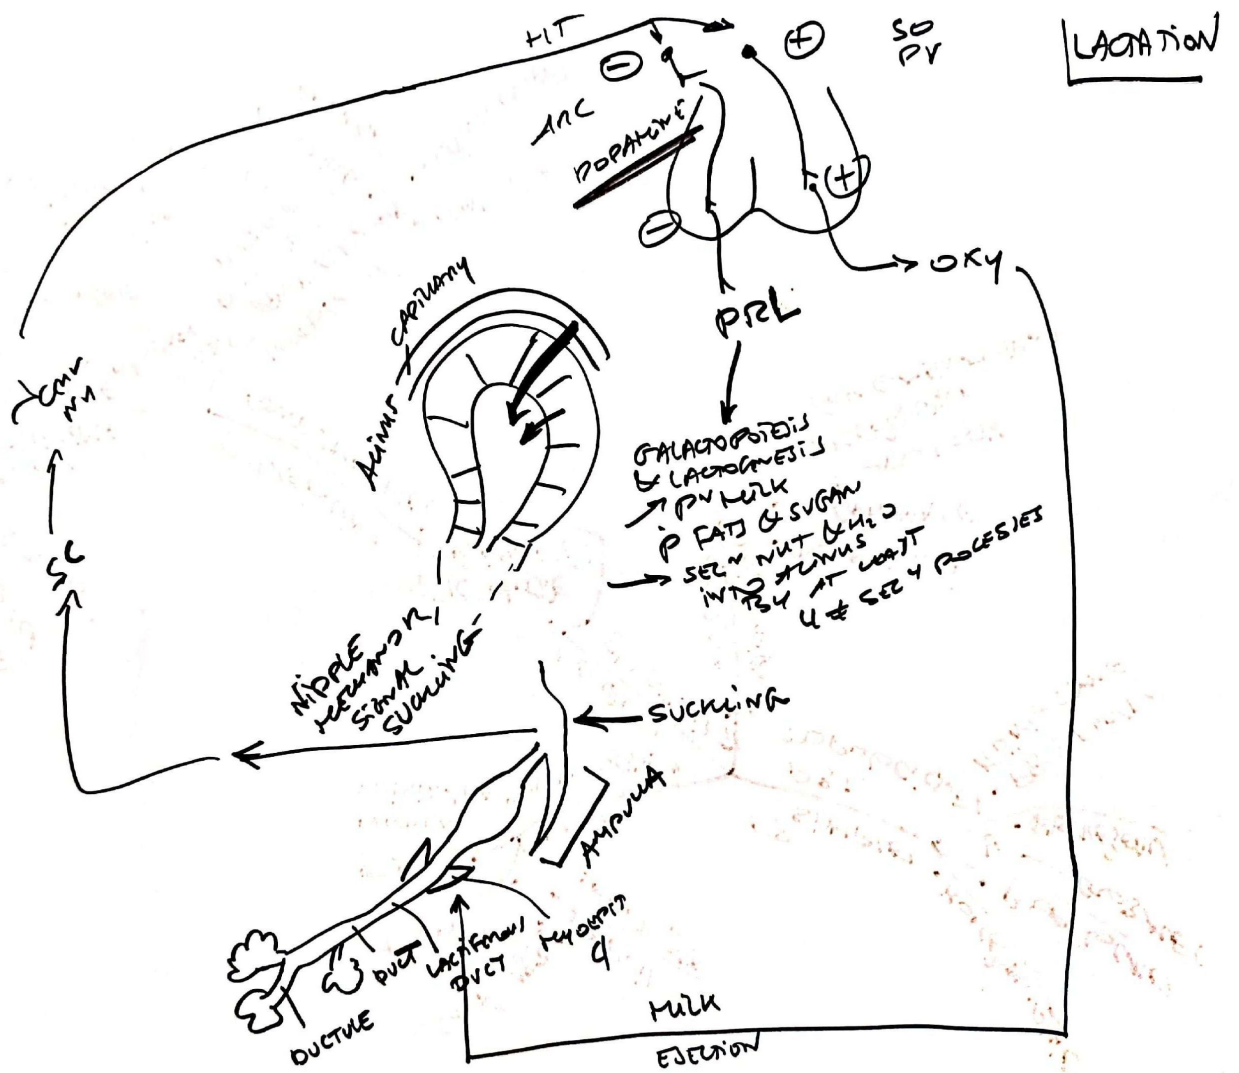 LACTATION
HT
SO
PV
⊕
⊖
ARC
DOPAMINE
⊕
⊖
OXY
PRL
CAPILLARY
ACINUS
GALACTOPOIESIS
& LACTOGNESIS
MILK
FATS & SUGAR
SECN NUT & H2O
INTO ACINUS
BY AT LEAST
4 ≠ SECY PROCESSES
SC
NIPPLE
MECHANOR,
SIGNAL
SUCKLING
SUCKLING
AMPULLA
MYOEPIT
DUCT
LACTIFEROUS
DUCT
DUCTULE
MILK
EJECTION